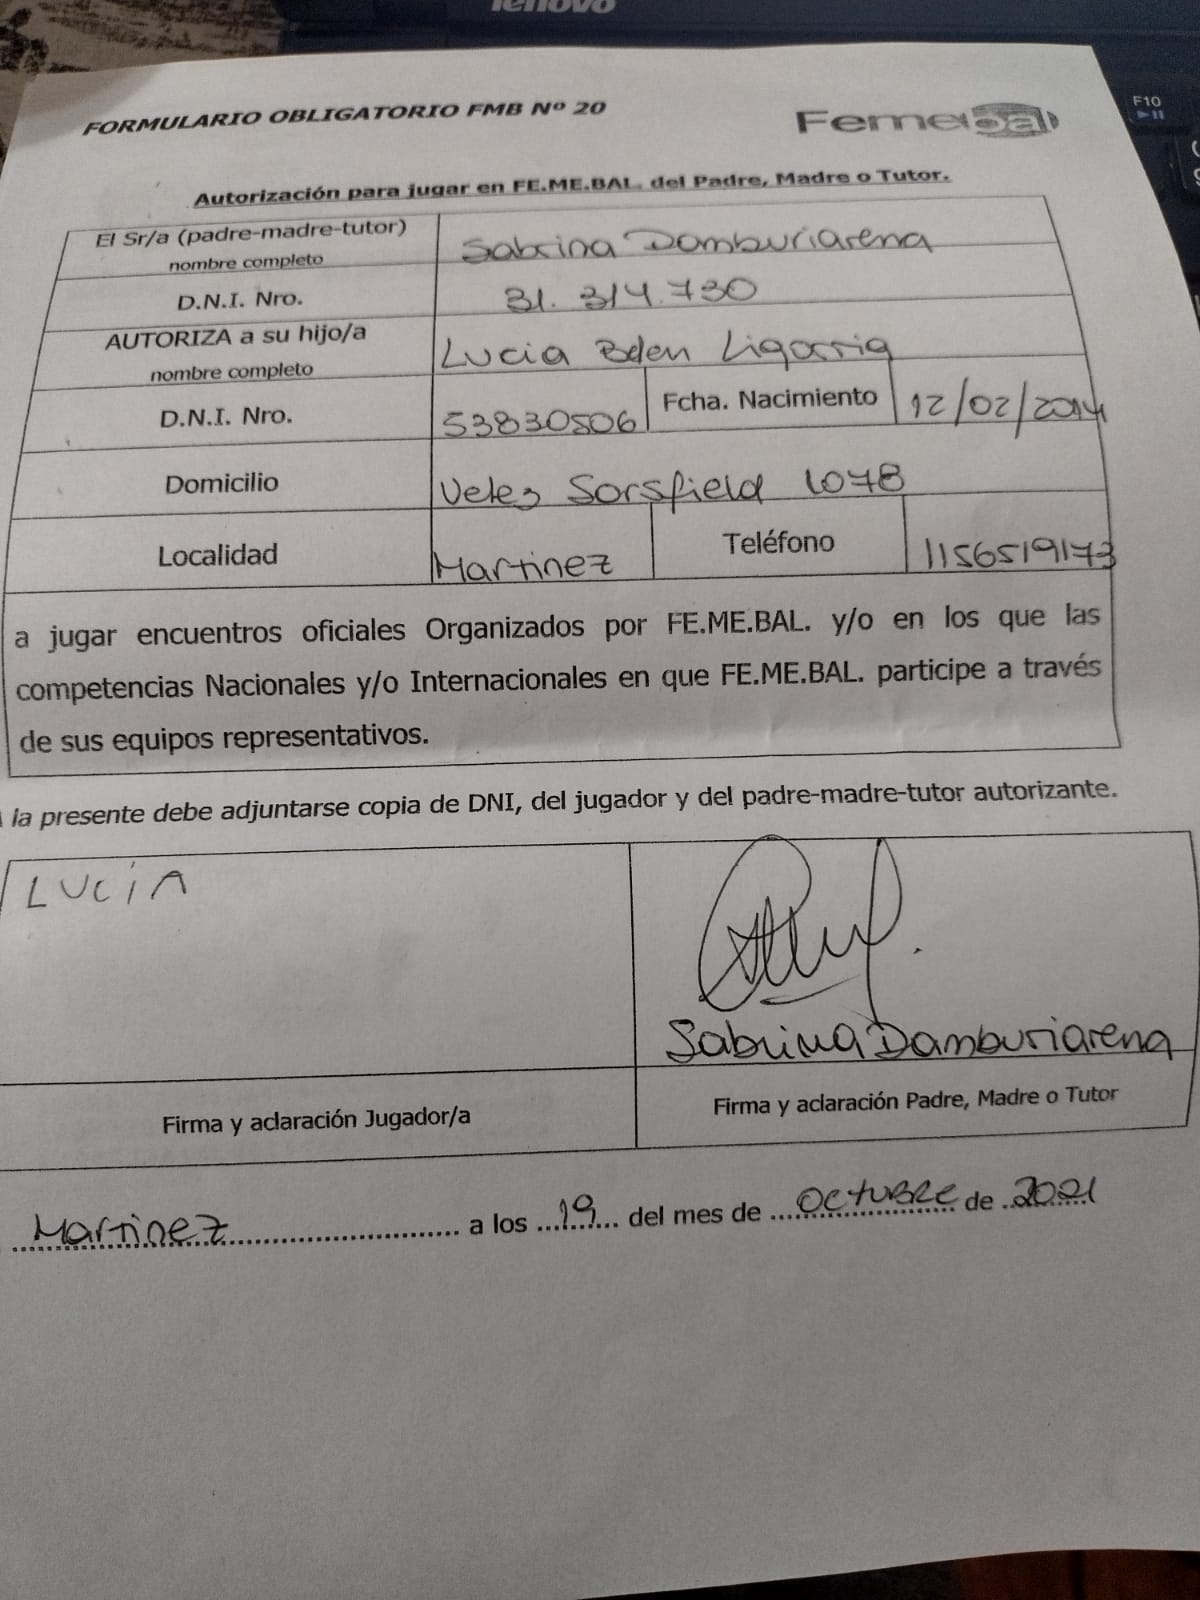 lenovo
F10
FORMULARIO OBLIGATORIO FMB Nº 20
Femebal
Autorización para jugar en FE.ME.BAL. del Padre, Madre o Tutor.
El Sr/a (padre-madre-tutor) nombre completo Sabrina Damburiarena
D.N.I. Nro. 31.314.730
AUTORIZA a su hijo/a nombre completo Lucia Belen Ligorria
D.N.I. Nro. 53830506 Fcha. Nacimiento 12/02/2014
Domicilio Velez Sarsfield 1078
Localidad Martinez Teléfono 1156519173
a jugar encuentros oficiales Organizados por FE.ME.BAL. y/o en los que las
competencias Nacionales y/o Internacionales en que FE.ME.BAL. participe a través
de sus equipos representativos.
la presente debe adjuntarse copia de DNI, del jugador y del padre-madre-tutor autorizante.
LUCIA
Sabrina Damburiarena
Firma y aclaración Jugador/a Firma y aclaración Padre, Madre o Tutor
Martinez a los 19 del mes de OCTUBRE de 2021